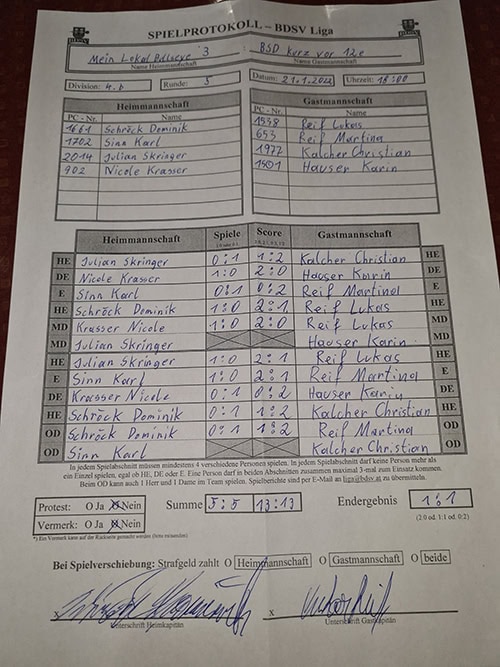 SPIELPROTOKOLL – BDSV Liga
Mein Lokal Bullseye 3 : BSD kurz vor 12e
Name Heimmannschaft Name Gastmannschaft
Division: 4.b Runde: 5 Datum: 21.1.2022 Uhrzeit: 18:00
Heimmannschaft Gastmannschaft
PC - Nr. Name PC - Nr. Name
1661 Schröck Dominik 1538 Reif Lukas
1702 Sinn Karl 653 Reif Martina
2014 Julian Skringer 1972 Kalcher Christian
902 Nicole Krasser 1501 Hauser Karin
Heimmannschaft Spiele Score Gastmannschaft
HE Julian Skringer 0:1 1:2 Kalcher Christian HE
DE Nicole Krasser 1:0 2:0 Hauser Karin DE
E Sinn Karl 0:1 0:2 Reif Martina E
HE Schröck Dominik 1:0 2:1 Reif Lukas HE
MD Krasser Nicole 1:0 2:0 Reif Lukas MD
MD Julian Skringer Hauser Karin MD
HE Julian Skringer 1:0 2:1 Reif Lukas HE
E Sinn Karl 1:0 2:1 Reif Martina E
DE Krasser Nicole 0:1 0:2 Hauser Karin DE
HE Schröck Dominik 0:1 1:2 Kalcher Christian HE
OD Schröck Dominik 0:1 1:2 Reif Martina OD
OD Sinn Karl Kalcher Christian OD
In jedem Spielabschnitt müssen mindestens 4 verschiedene Personen spielen. In jedem Spielabschnitt darf keine Person mehr als
ein Einzel spielen, egal ob HE, DE oder E. Eine Person darf in beiden Abschnitten zusammen maximal 3-mal zum Einsatz kommen.
Beim OD kann auch 1 Herr und 1 Dame im Team spielen. Spielberichte sind per E-Mail an liga@bdsv.at zu übermitteln.
Protest: O Ja O Nein Summe 5:5 13:13 Endergebnis 1:1
Vermerk: O Ja O Nein (2:0 od. 1:1 od. 0:2)
*) Ein Vermerk kann auf der Rückseite gemacht werden (bitte
Bei Spielverschiebung: Strafgeld zahlt O Heimmannschaft O Gastmannschaft O beide
x x
Unterschrift Heimkapitän Unterschrift Gastkapitän